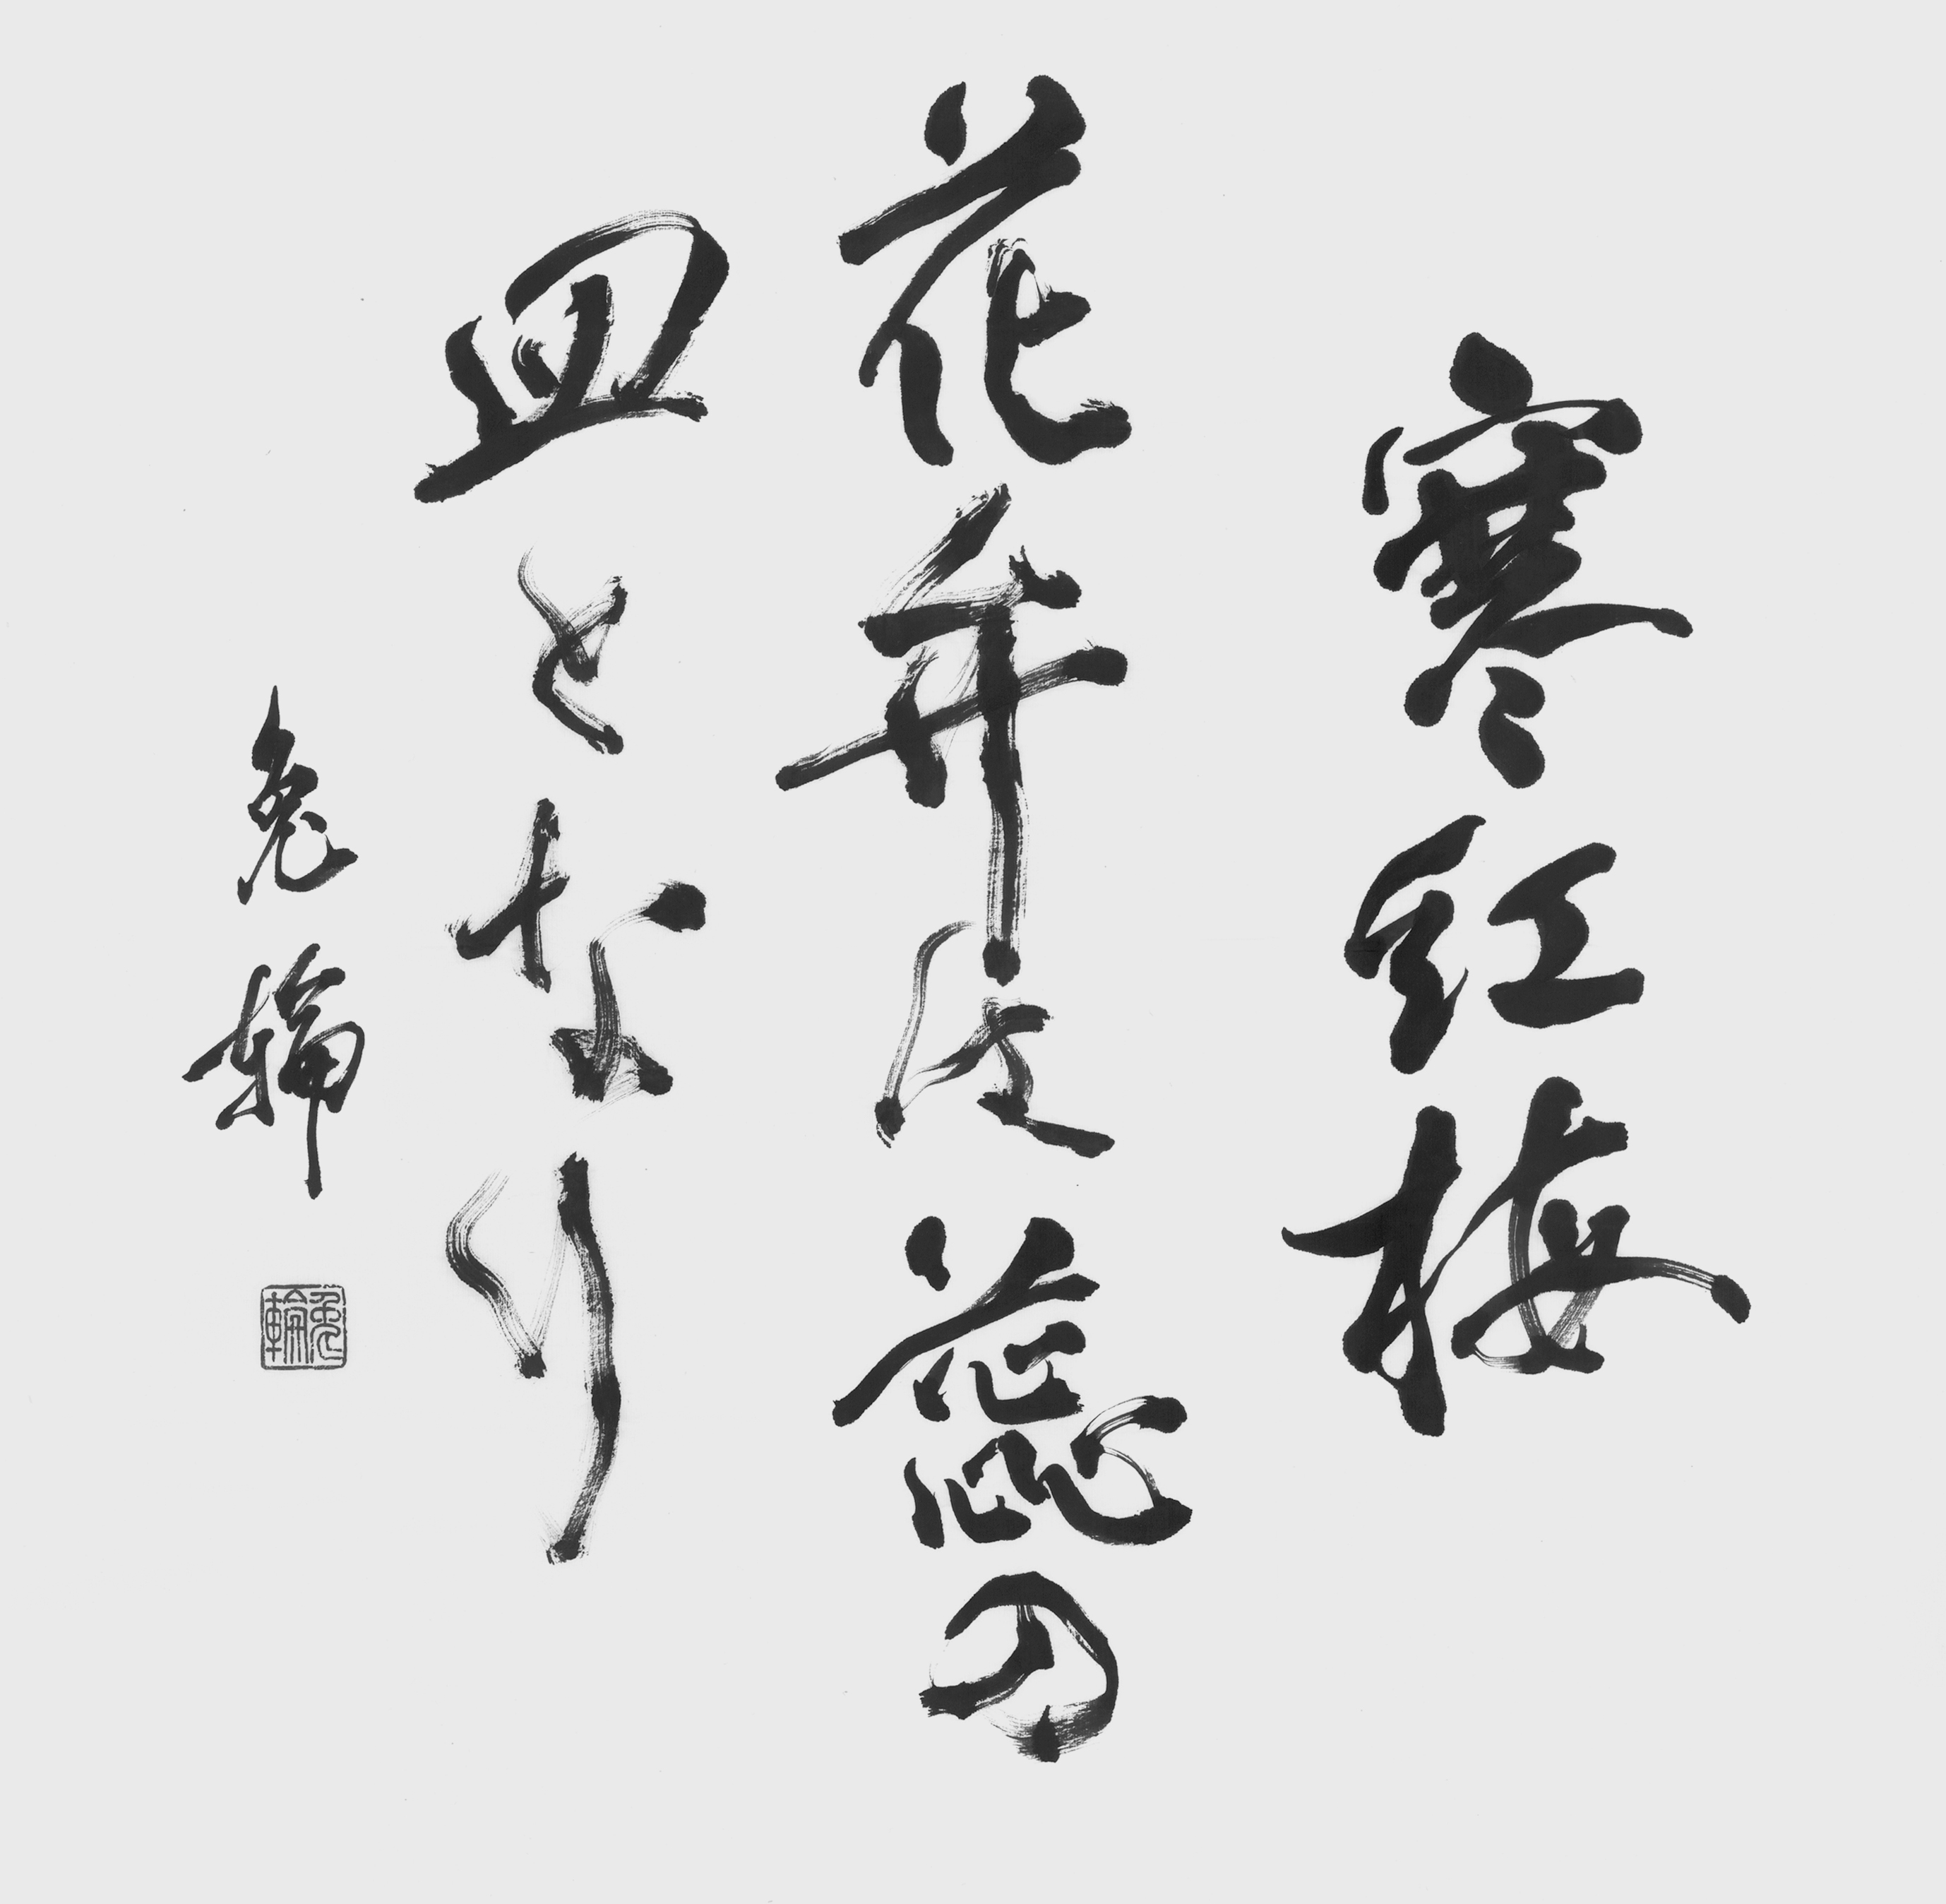 寒紅梅
花弁は蕊の
皿となり
兎輪
兎輪